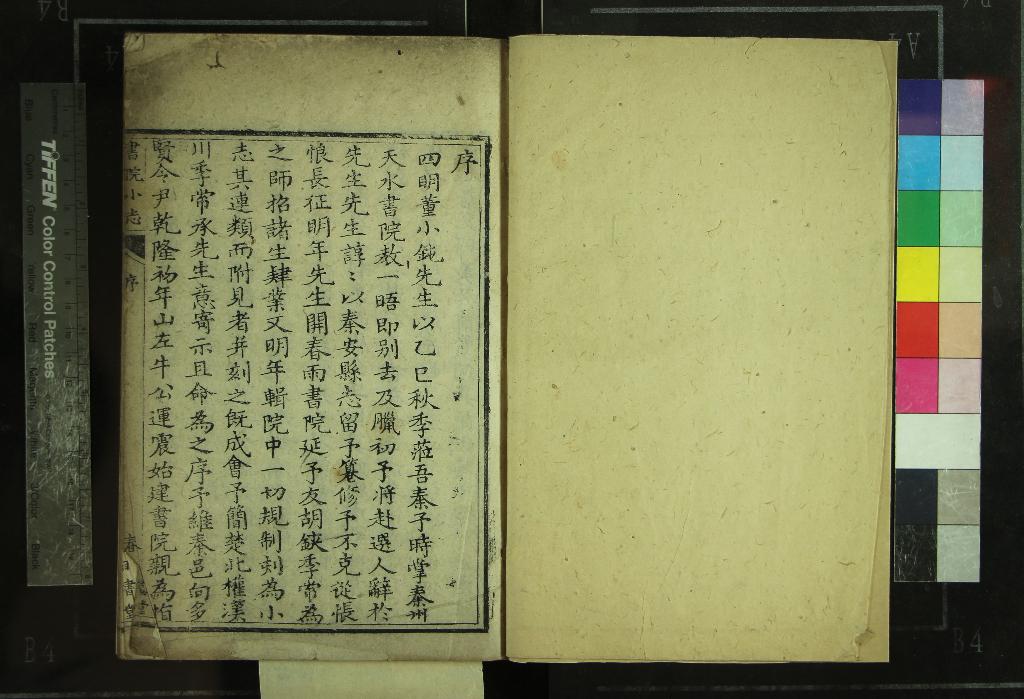 序
四明董小鈍先生以乙巳秋季蒞吾秦予時掌秦州
天水書院教一晤即别去及臘初予将赴選人辭於
先生先生諄〻以秦安縣志留予纂修予不克從悵
悵長征明年先生開春雨書院延予友胡鋏季常為
之師招諸生肄業又明年輯院中一切規制刻為小
志其連類而附見者并刻之既成會予簡楚北權漢
川季常承先生意寄示且命為之序予維秦邑向多
賢令尹乾隆初年山左牛公運震始建書院親為
書院小志
序
春雨書堂
TIFFEN Color Control Patches
Blue Cyan Green Yellow Red Magenta White 3/Color Black
B4
A4